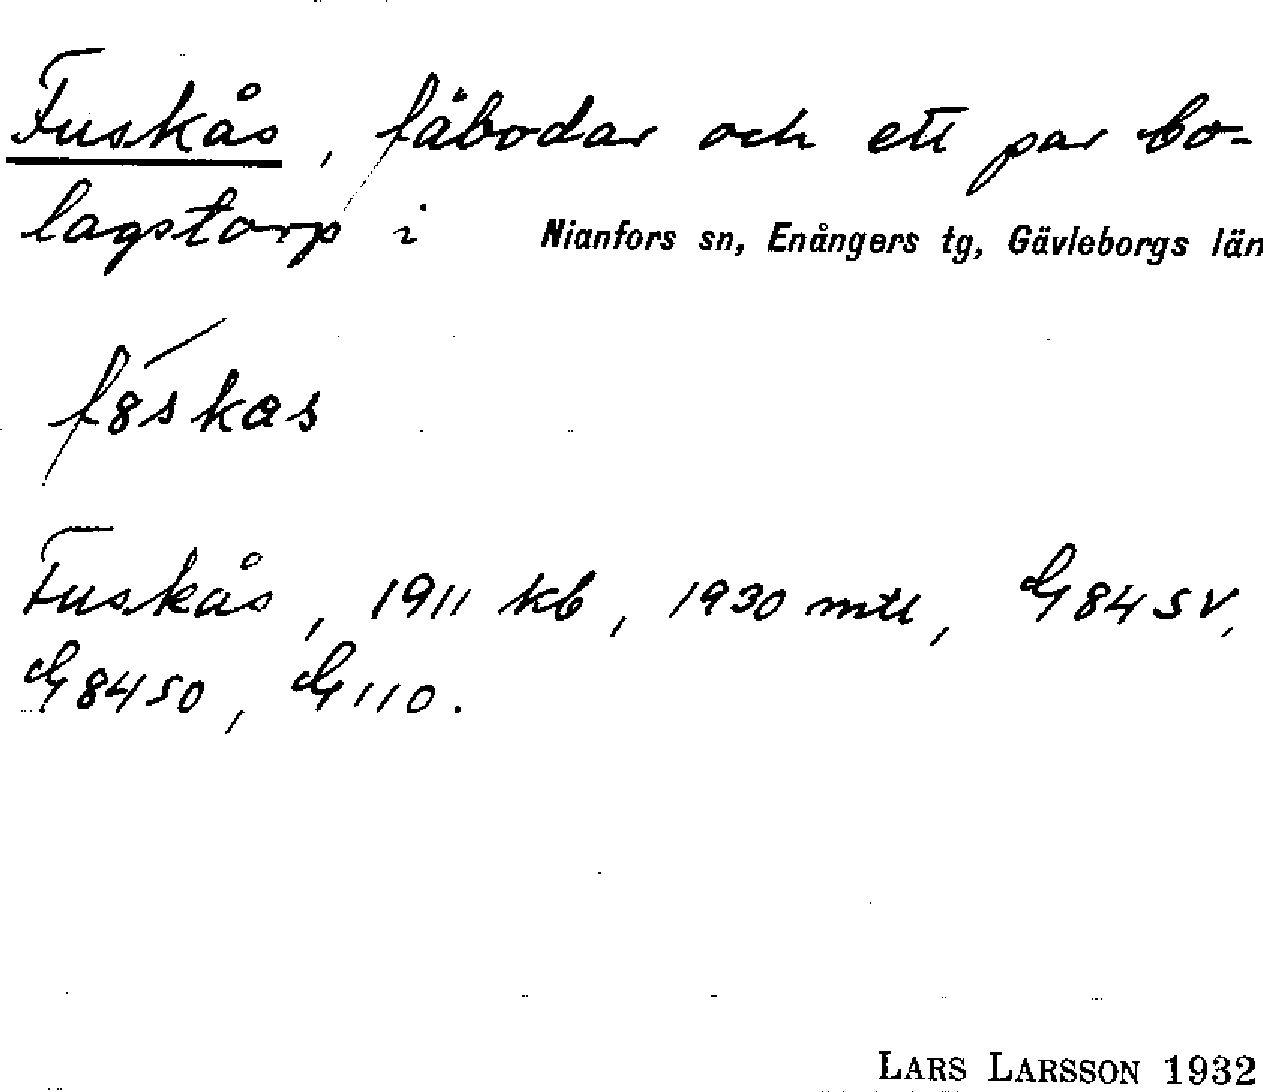 Fuskås, fäbodar och ett par bo-
lagstorp i Nianfors sn, Enångers tg, Gävleborgs län
Fuskås, 1911 kb, 1930 mtl, G84SV,
G84SO, G110.
LARS LARSSON 1932